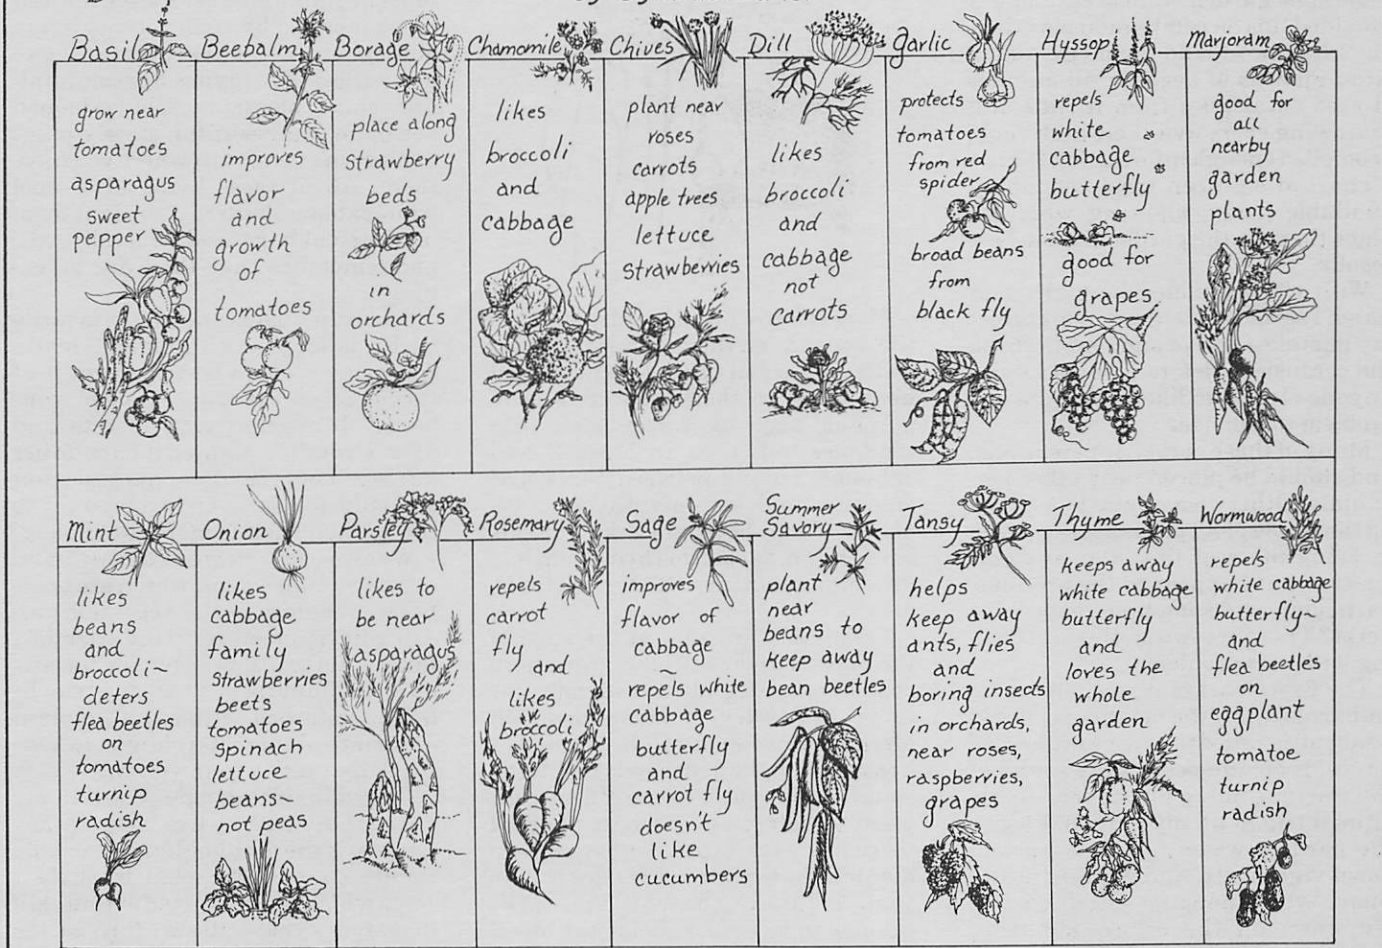 Basil
grow near
tomatoes
asparagus
sweet
pepper
Beebalm
improves
flavor
and
growth
of
tomatoes
Borage
place along
strawberry
beds
in
orchards
Chamomile
likes
broccoli
and
cabbage
Chives
plant near
roses
carrots
apple trees
lettuce
strawberries
Dill
likes
broccoli
and
cabbage
not
carrots
Garlic
protects
tomatoes
from red
spider
broad beans
from
black fly
Hyssop
repels
white
cabbage
butterfly
good for
grapes
Marjoram
good for
all
nearby
garden
plants
Mint
likes
beans
and
broccoli~
deters
flea beetles
on
tomatoes
turnip
radish
Onion
likes
cabbage
family
strawberries
beets
tomatoes
spinach
lettuce
beans~
not peas
Parsley
likes to
be near
asparagus
Rosemary
repels
carrot
fly
and
likes
broccoli
Sage
improves
flavor of
cabbage
~
repels white
cabbage
butterfly
and
carrot fly
doesn't
like
cucumbers
Summer
Savory
plant
near
beans to
keep away
bean beetles
Tansy
helps
keep away
ants, flies
and
boring insects
in orchards,
near roses,
raspberries,
grapes
Thyme
keeps away
white cabbage
butterfly
and
loves the
whole
garden
Wormwood
repels
white cabbage
butterfly~
and
flea beetles
on
eggplant
tomatoe
turnip
radish